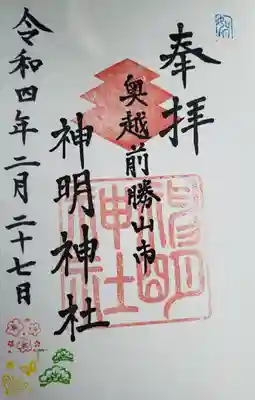 奉拝
奥越前勝山市
神明神社
令和四年二月二十七日
神明
神社